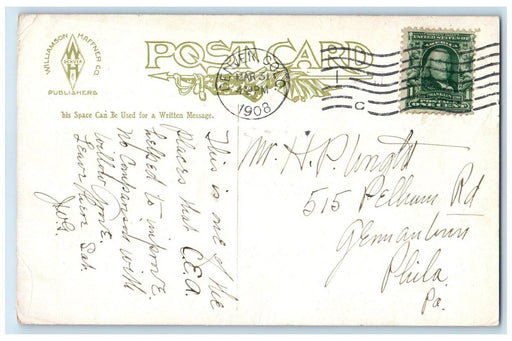 WILLIAMSON HAFFNER CO.
DENVER
PUBLISHERS
POST CARD
MAR 31
4 - PM
1908
UNITED STATES OF
AMERICA
FRANKLIN
C
his Space Can Be Used for a Written Message.
This is one of the
places that C.E.A.
helped to improve.
No Comparison with
Willow Grove.
Leave here Sat.
Mr. H. P. Wright
515 Pelham Rd
Germantown
Phila.
Pa.